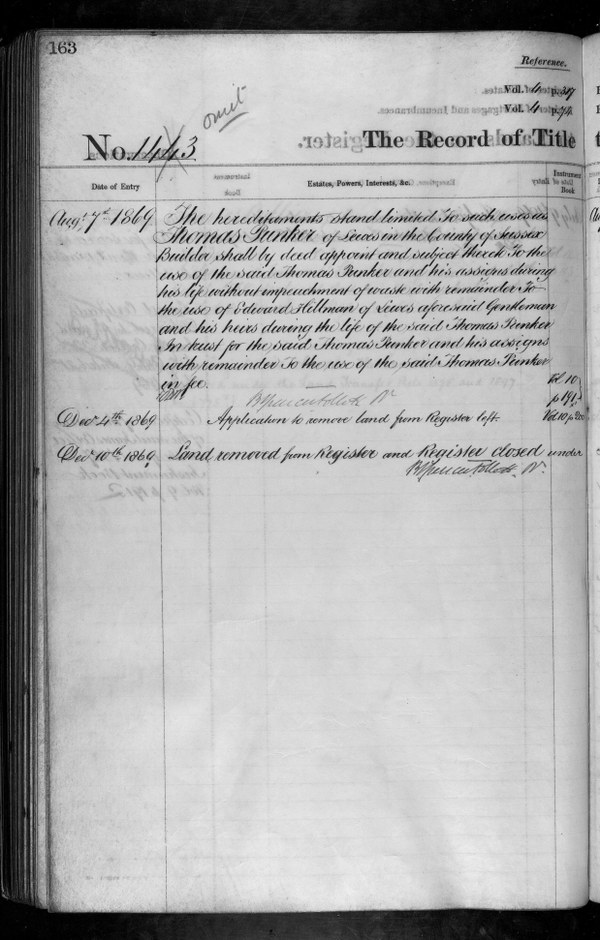 163
Reference.
Vol. 4 p. 317
Vol. 4 p. 74
omit
No. 1443
The Record of Title
Date of Entry
Estates, Powers, Interests, &c.
Instrument
Book
Augt. 7th 1869
The hereditaments stand limited To such uses as
Thomas Punker of Lewes in the County of Sussex
Builder shall by deed appoint and subject thereto To the
use of the said Thomas Punker and his assigns during
his life without impeachment of waste with remainder To
the use of Edward Hillman of Lewes aforesaid Gentleman
and his heirs during the life of the said Thomas Punker
In trust for the said Thomas Punker and his assigns
with remainder To the use of the said Thomas Punker
in fee.
Vol. 10
p 195
Decr. 4th. 1869
Application to remove land from Register left.
Vol 10 p 200
Decr. 10th. 1869
Land removed from Register and Register closed under